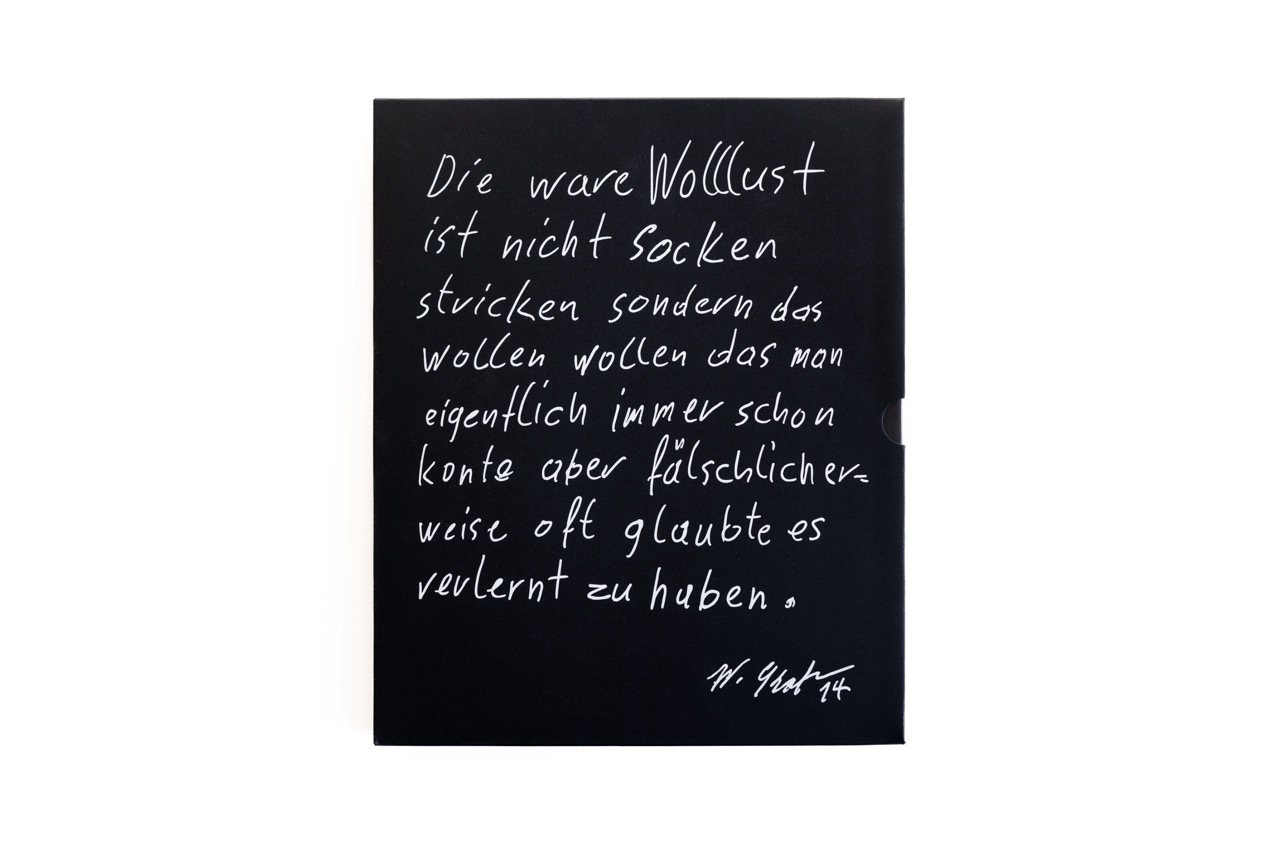 Die ware Wolllust
ist nicht Socken
stricken sondern das
wollen wollen das man
eigentlich immer schon
konte aber fälschlicher=
weise oft glaubte es
verlernt zu haben.
W. 14